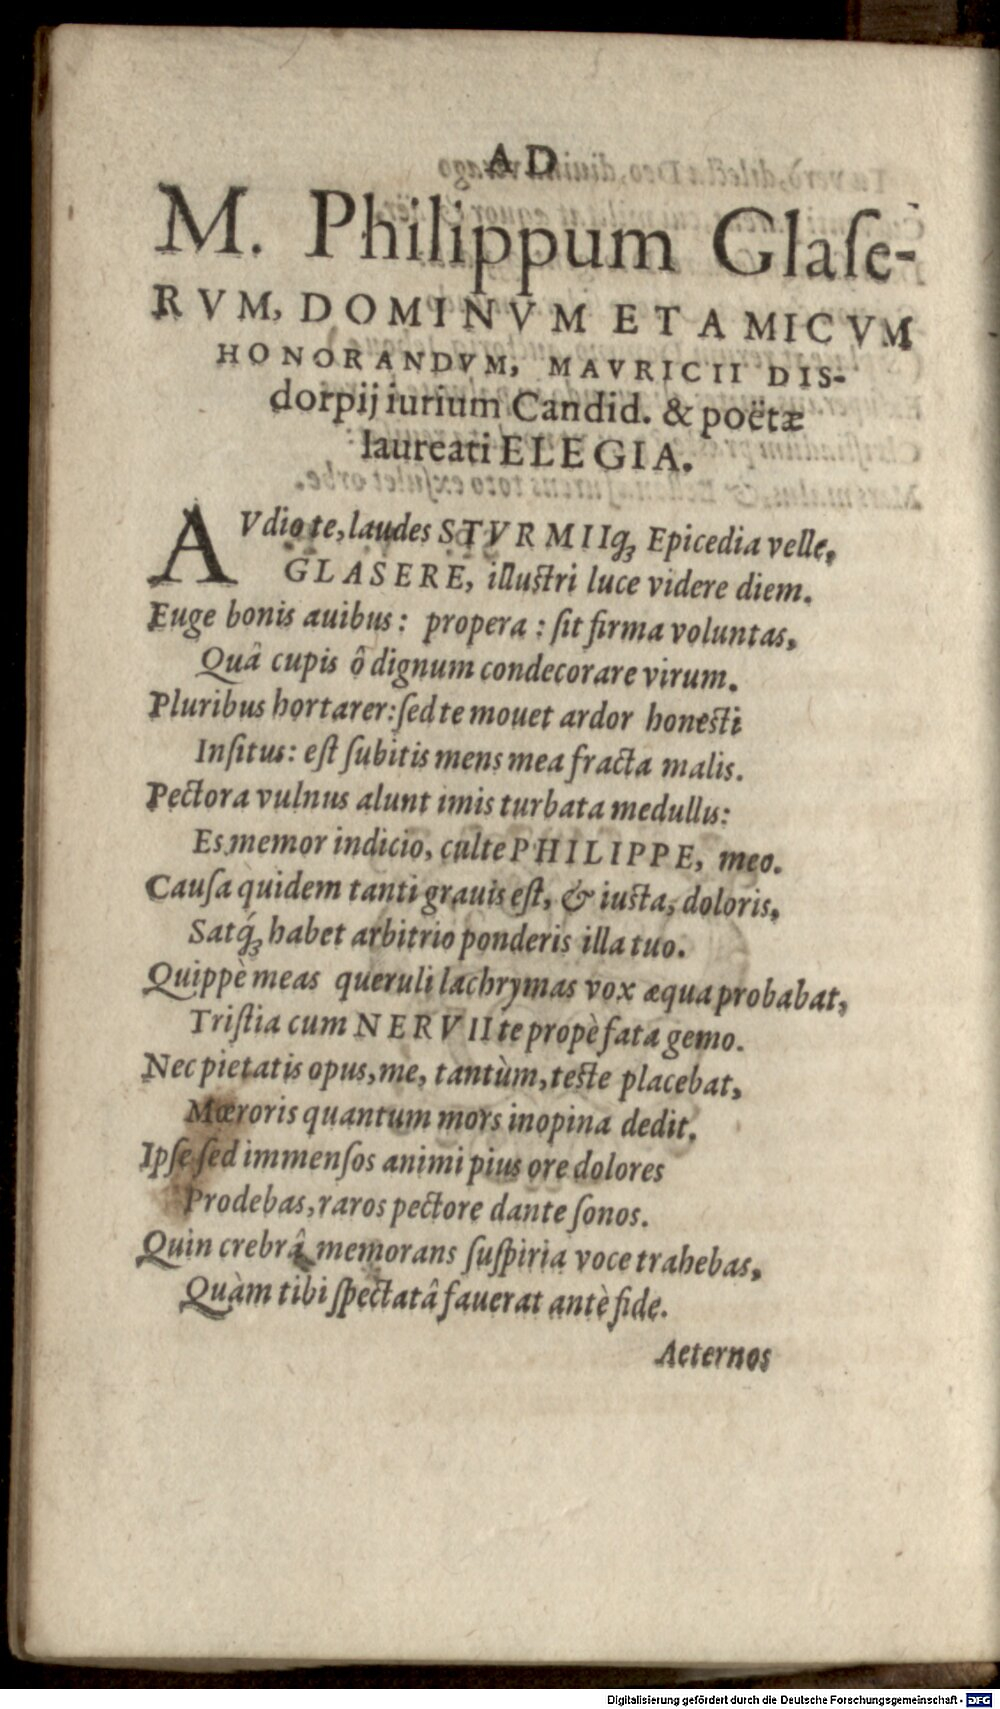 AD
M. Philippum Glaſe-
RVM, DOMINVM ET AMICVM
HONORANDVM, MAVRICII DIS-
dorpij iurium Candid. & poëtæ
laureati ELEGIA.
AVdio te, laudes STVRMIIq́; Epicedia velle,
GLASERE, illuſtri luce videre diem.
Euge bonis auibus: propera: ſit firma voluntas,
Quâ cupis ô dignum condecorare virum.
Pluribus hortarer: ſed te mouet ardor honeſti
Inſitus: eſt ſubitis mens mea fracta malis.
Pectora vulnus alunt imis turbata medullis:
Es memor indicio, culte PHILIPPE, meo.
Cauſa quidem tanti grauis eſt, & iuſta, doloris,
Satq́; habet arbitrio ponderis illa tuo.
Quippè meas queruli lachrymas vox æqua probabat,
Triſtia cum NERVII te propè fata gemo.
Nec pietatis opus, me, tantùm, teſte placebat,
Mœroris quantum mors inopina dedit.
Ipſe ſed immenſos animi pius ore dolores
Prodebas, raros pectore dante ſonos.
Quin crebrâ memorans ſuſpiria voce trahebas,
Quàm tibi ſpectatâ fauerat antè fide.
Aeternos
Digitalisierung gefördert durch die Deutsche Forschungsgemeinschaft - DFG